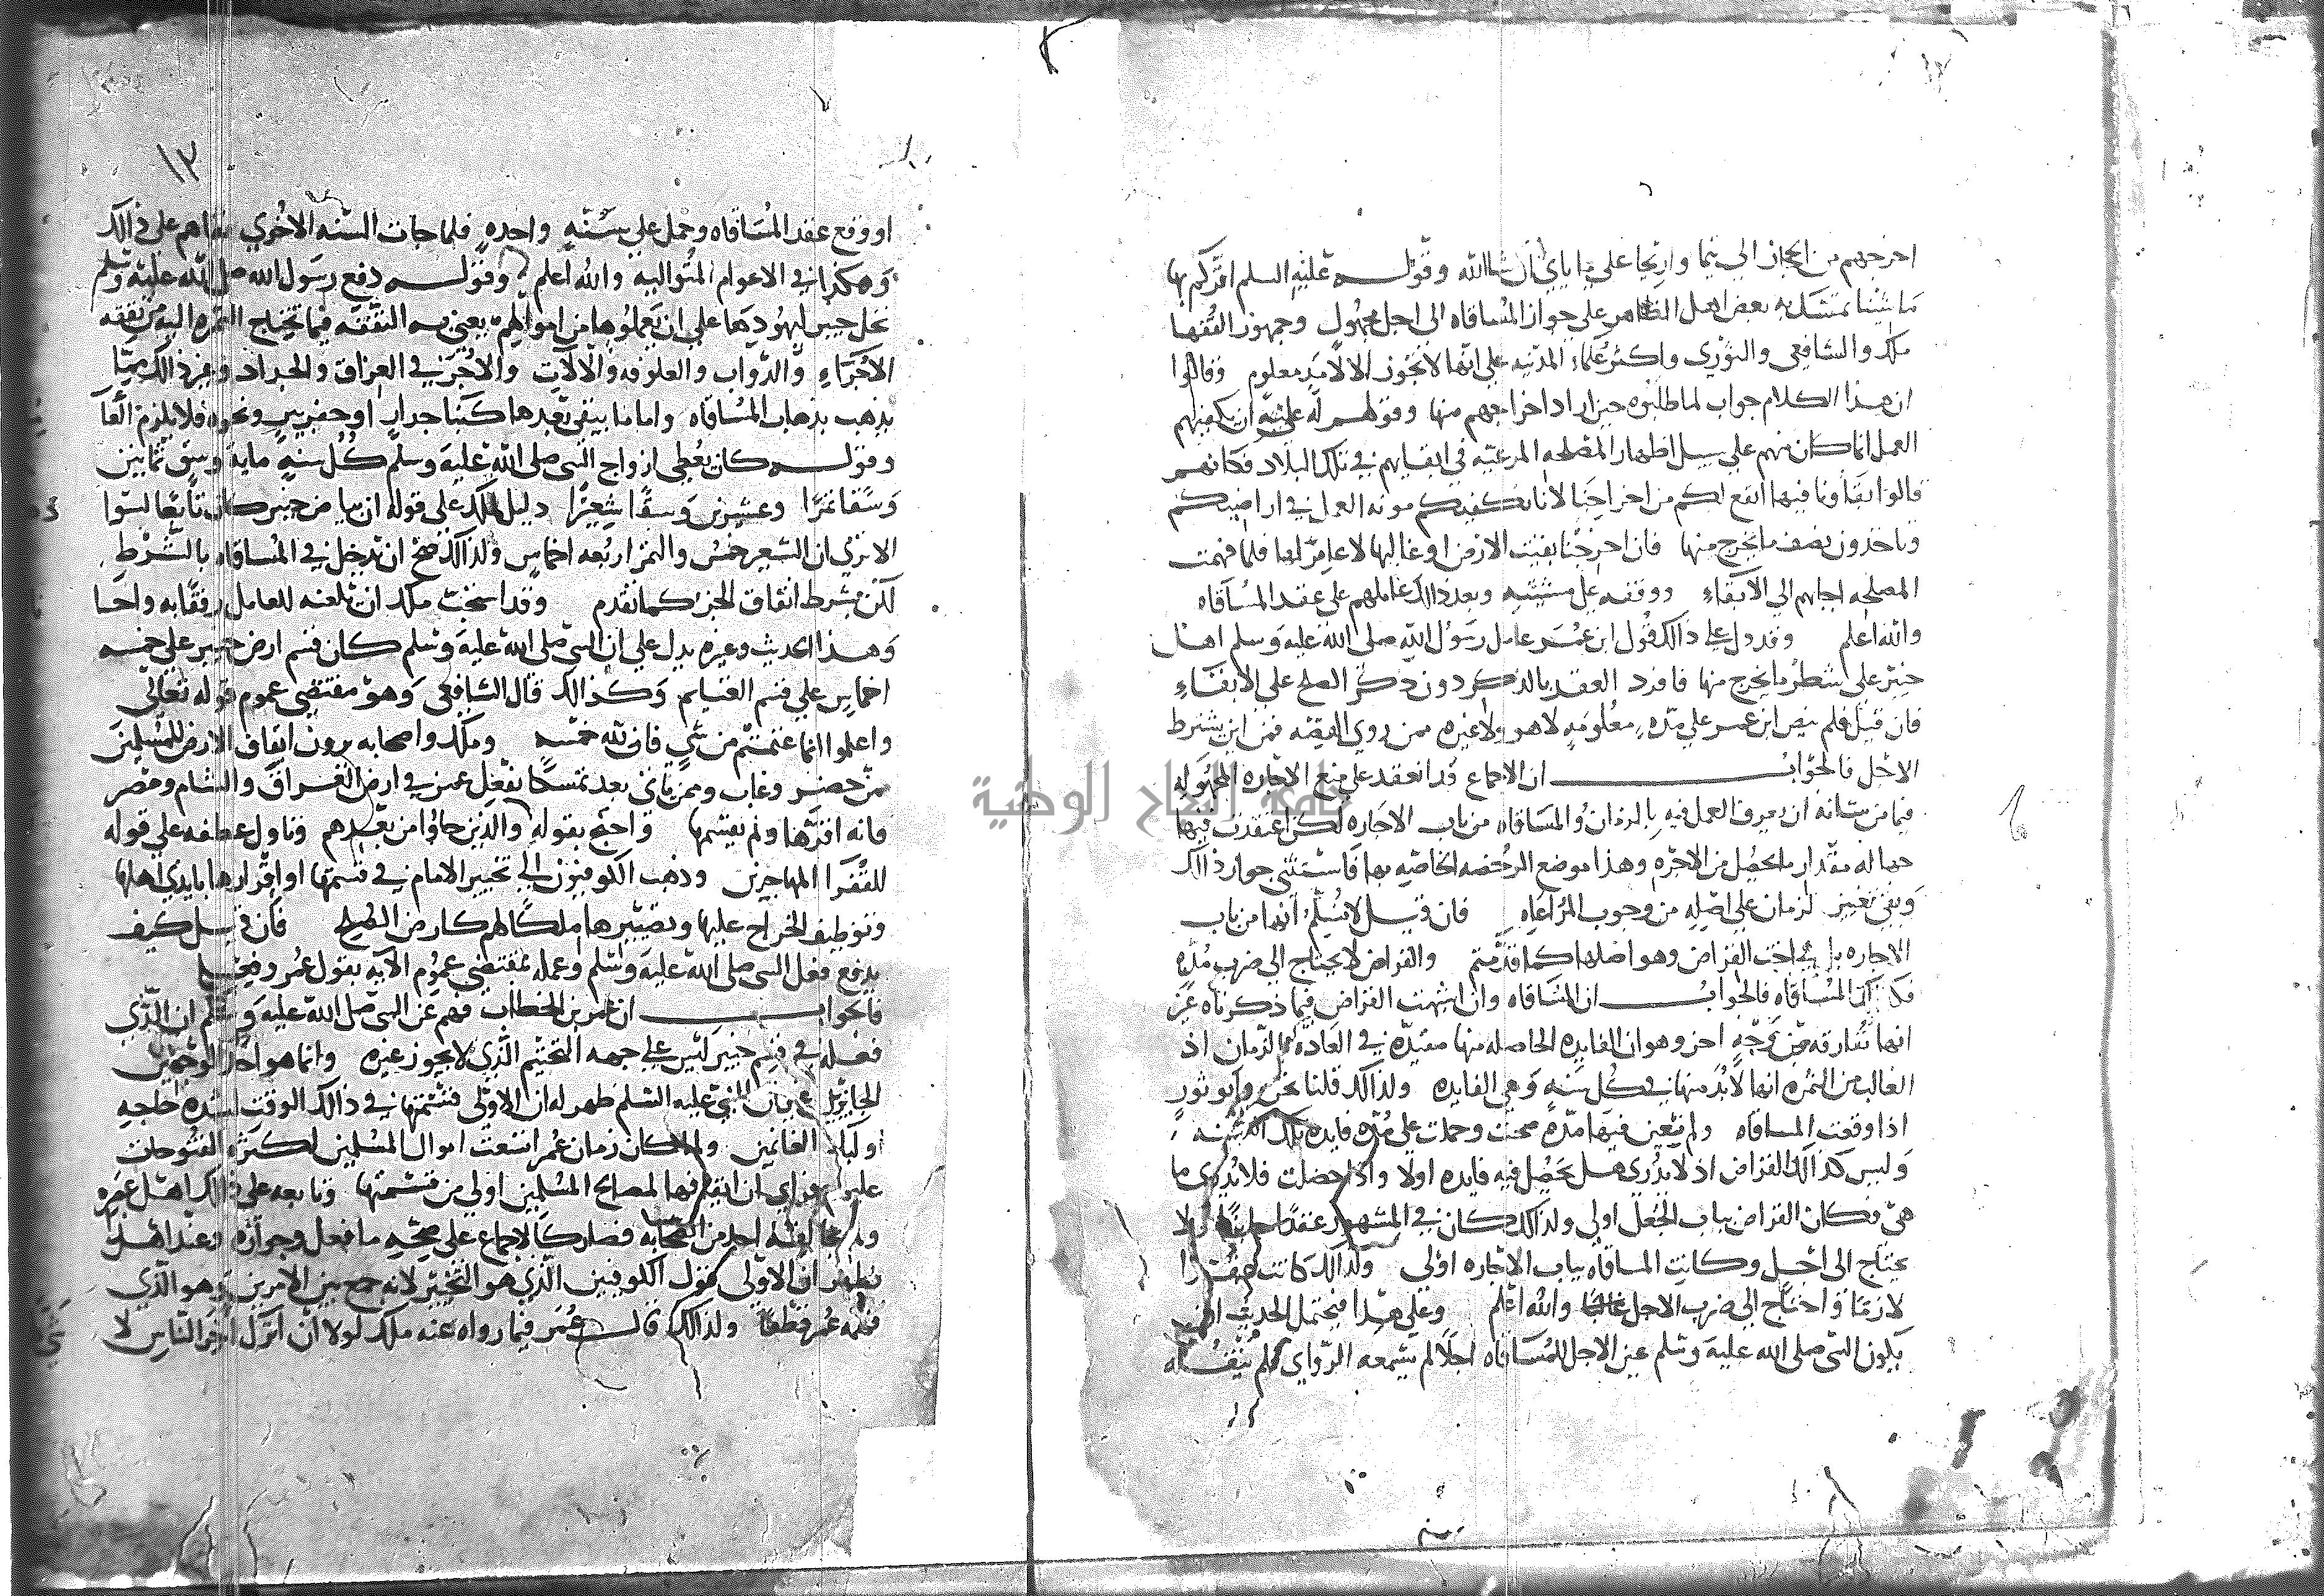 اخرجهم من الحجاز الي تيما واريحا علي ما ياتي ان شاالله وقوله عليه السلم اقركم بها
ما شينا تمسك به بعض اهل الظاهر علي جواز المساقاه الي اجل مجهول وجمهور الفقها
ملك والشافعي والثوري واكثر علماء المدينه علي انها لا تجوز الا لامد معلوم وقالوا
ان هذا الكلام جواب لما طلبوه حين اراد اخراجهم منها وقولهم له علي ان نكفيهم
العمل انما كان منهم علي سبيل اظهار المصلحه المرعيه في ابقايهم في تلك البلاد فكانهم
قالوا بقاونا فيها انفع لكم من اخراجنا لانا نكفيكم مونه العمل في اراضيكم
وتاخذون نصف ما يخرج منها فان اخرجتنا بقيت الارض او غالبها لا عامر لها فلما فهمت
المصلحه اجابهم الي الابقاء ووقفه علي مشيئته وبعد ذالك عاملهم علي عقد المساقاه
والله اعلم وقد دل علي ذالك قول ابن عمر عامل رسول الله صلي الله عليه وسلم اهل
خيبر علي شطر ما يخرج منها فافرد العقد بالذكر دون ذكر الصلح علي الابقاء
فان قيل فلم ينص ابن عمر علي مده معلومه لا هو ولا غيره ممن روي القصه فمن اين يشترط
الاجل فالجواب ان الاجماع قد انعقد علي منع الاجاره المجهوله
فيما من شانه ان يعرف العمل فيه بالزمان والمساقاه من باب الاجاره لكن اغتفرت فيها
جهاله مقدار ما يحصل من الاجره وهذا موضع الرخصه الخاصيه بها فاستثني جواز ذالك
وبقي تعيين الزمان علي اصله من وجوب المراعاه فان قيل لا نسلم انها من باب
الاجاره بل هي اخت القراض وهو اصلها كما قدمتم والقراض لا يحتاج الي ضرب مده
فكذالك المساقاه فالجواب ان المساقاه وان اشبهت القراض فيما ذكرناه غير
انها تفارقه من وجه اخر وهو ان الفايده الحاصله منها مقيده في العاده بالزمان اذ
الغالب من الثمره انها لا بد منها في كل سنه وهي الفايده ولذالك قلنا نحن وابو ثور
اذا وقعت المساقاه ولم تعين فيها مده صحت وحملت علي مده فايده تلك السنه
وليس كذالك القراض اذ لا يدري هل يحصل فيه فايده اولا واذا حصلت فلا يدري ما
هي فكان القراض بباب الجعل اولي ولذالك كان في المشهور عقدا جايزا ولا
يحتاج الي اجل وكانت المساقاه بباب الاجاره اولي ولذالك كانت عقدا
لازما واحتاج الي ضرب الاجل والله اعلم وعلي هذا فيحتمل الحديث ان
يكون النبي صلي الله عليه وسلم عين الاجل للمساقاه اجلا لم يسمعه الراوي فلم ينقله
١٣
او وقع عقد المساقاه وحمل علي سنه واحده فلما جات السنه الاخري بقاهم علي ذالك
وهكذا في الاعوام المتواليه والله اعلم وقوله دفع رسول الله صلي الله عليه وسلم
نخل خيبر ليهودها علي ان يعملوها من اموالهم يعني به النفقه فيما تحتاج الثمره اليه من نفقه
الاجراء والدواب والعلوفه والالات والاجر في العزاق والجداد وغير ذالك مما
يذهب بذهاب المساقاه واما ما يبقي بعدها كبنا جدار او حفر بير ونحوه فلا يلزم
وقوله كان يعطي ازواج النبي صلي الله عليه وسلم كل سنه مايه وسق ثمانين
وسقا تمرا وعشرين وسقا شعيرا دليل لملك علي قوله ان بياض خيبر كان تابعا لسوا
الا تري ان الشعير خمس والتمر اربعه اخماس ولذالك صح ان تدخل في المساقاه بالشرط
لكن بشرط اتفاق الجز كما تقدم وقد استحب ملك ان تلغيه للعامل رفقا به واحسا
وهذا الحديث وغيره يدل علي ان النبي صلي الله عليه وسلم كان قسم ارض خيبر علي خمسه
اخماس علي قسم الغنيايم وكذالك قال الشافعي وهو مقتضي عموم قوله تعالي
واعلموا انما غنمتم من شي فان لله خمسه وملك واصحابه يرون ايقاف الارض للمسلمين
ممن حضر وغاب وممن ياتي بعد تمسكا بفعل عمر في ارض العراق والشام ومصر
فانه اقرها ولم يقسمها واحتج بقوله والذين جاوا من بعدهم وتاول عطفه علي قوله
للفقرا المهاجرين وذهب الكوفيون الي تخيير الامام في قسمتها او اقرارها بايدي اهلها
وتوظيف الخراج عليها وتصييرها ملكا لهم كارض الصلح فان قيل كيف
يدفع فعل النبي صلي الله عليه وسلم وعمله بمقتضي عموم الايه بقول عمر
فالجواب ان عمر بن الخطاب فهم عن النبي صلي الله عليه وسلم ان الذي
فعله في قسم خيبر ليس علي جهه التحتيم الذي لا يجوز غيره وانما هو احد الوجهين
الجايزين غير ان النبي عليه السلم ظهر له ان الاولي قسمتها في ذالك الوقت لشده الحاجه
الغانمين ولما كان زمان عمر اتسعت اموال المسلمين لكثره الفتوحات
عليهم فراي ان ايقافها لمصالح المسلمين اولي من قسمتها وتابعه علي ذالك اهل عصره
ولم يخالفه احد من الصحابه فصار كالاجماع علي صحه ما فعل وجوازه وعند اهل
يظهر ان الاولي قول الكوفيين الذي هو التخيير لانه جمع بين الامرين وهو الذي
فهمه عمر قطعا ولذالك قال عمر فيما رواه عنه ملك لولا ان اترك اخر الناس لا